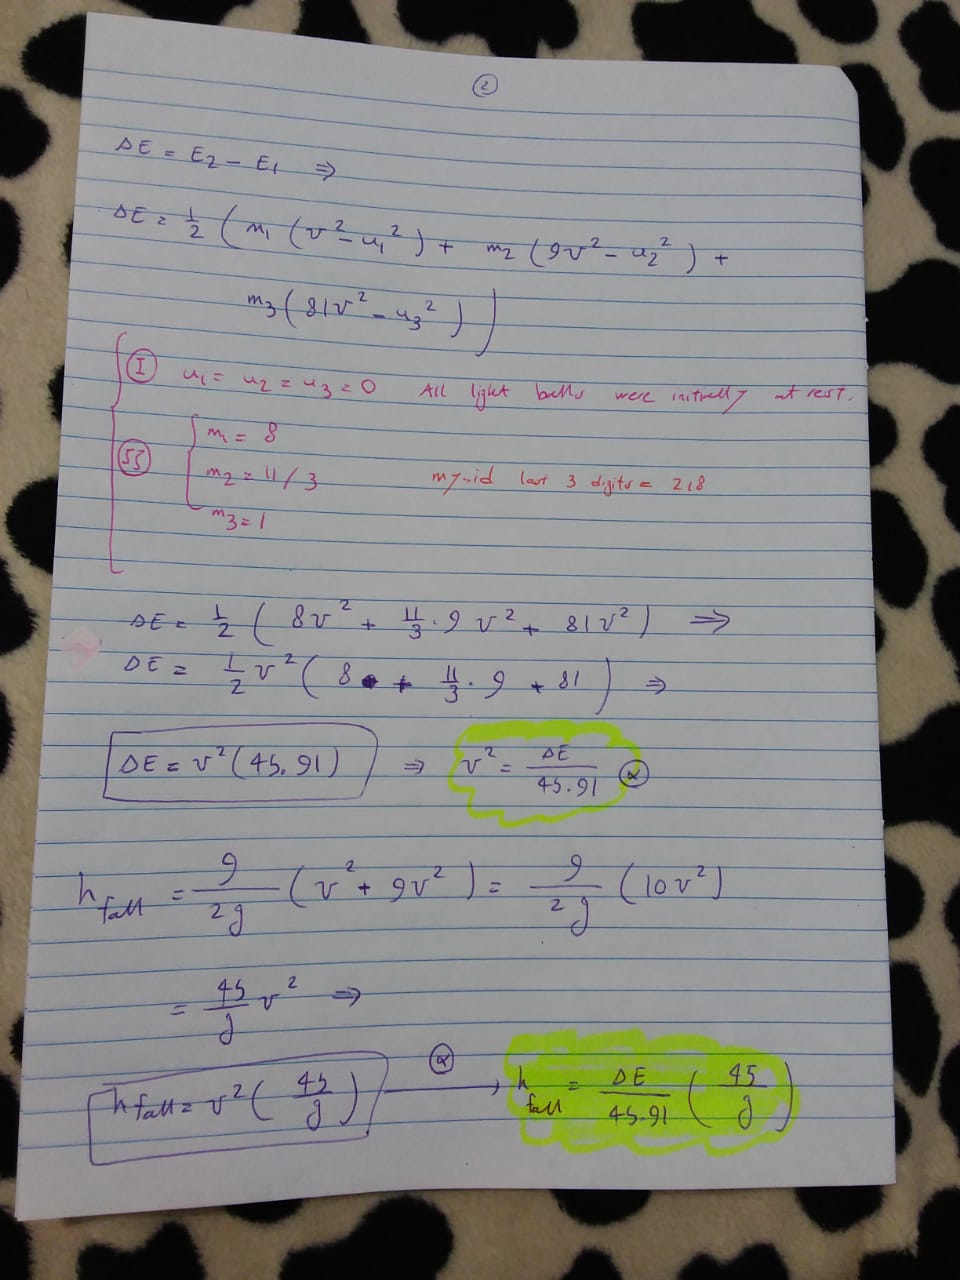 ②
ΔE = E₂ − E₁ ⇒
ΔE = 1/2 ( m₁ (v² − u₁²) + m₂ (9v² − u₂²) +
m₃ (81v² − u₃²) )
Ⓘ u₁ = u₂ = u₃ = 0 All light balls were initially at rest.
m₁ = 8
m₂ = 11/3 my-id last 3 digits = 218
m₃ = 1
ΔE = 1/2 ( 8v² + 11/3 · 9 v² + 81v² ) ⇒
ΔE = 1/2 v² ( 8 + 11/3 · 9 + 81 ) ⇒
ΔE = v² (45.91) ⇒ v² = ΔE/45.91 ⓐ
h fall = 9/2g ( v² + 9v² ) = 9/2g (10v²)
= 45/g v² ⇒
h fall = v² ( 45/g ) ⓐ → h fall = ΔE/45.91 ( 45/g )